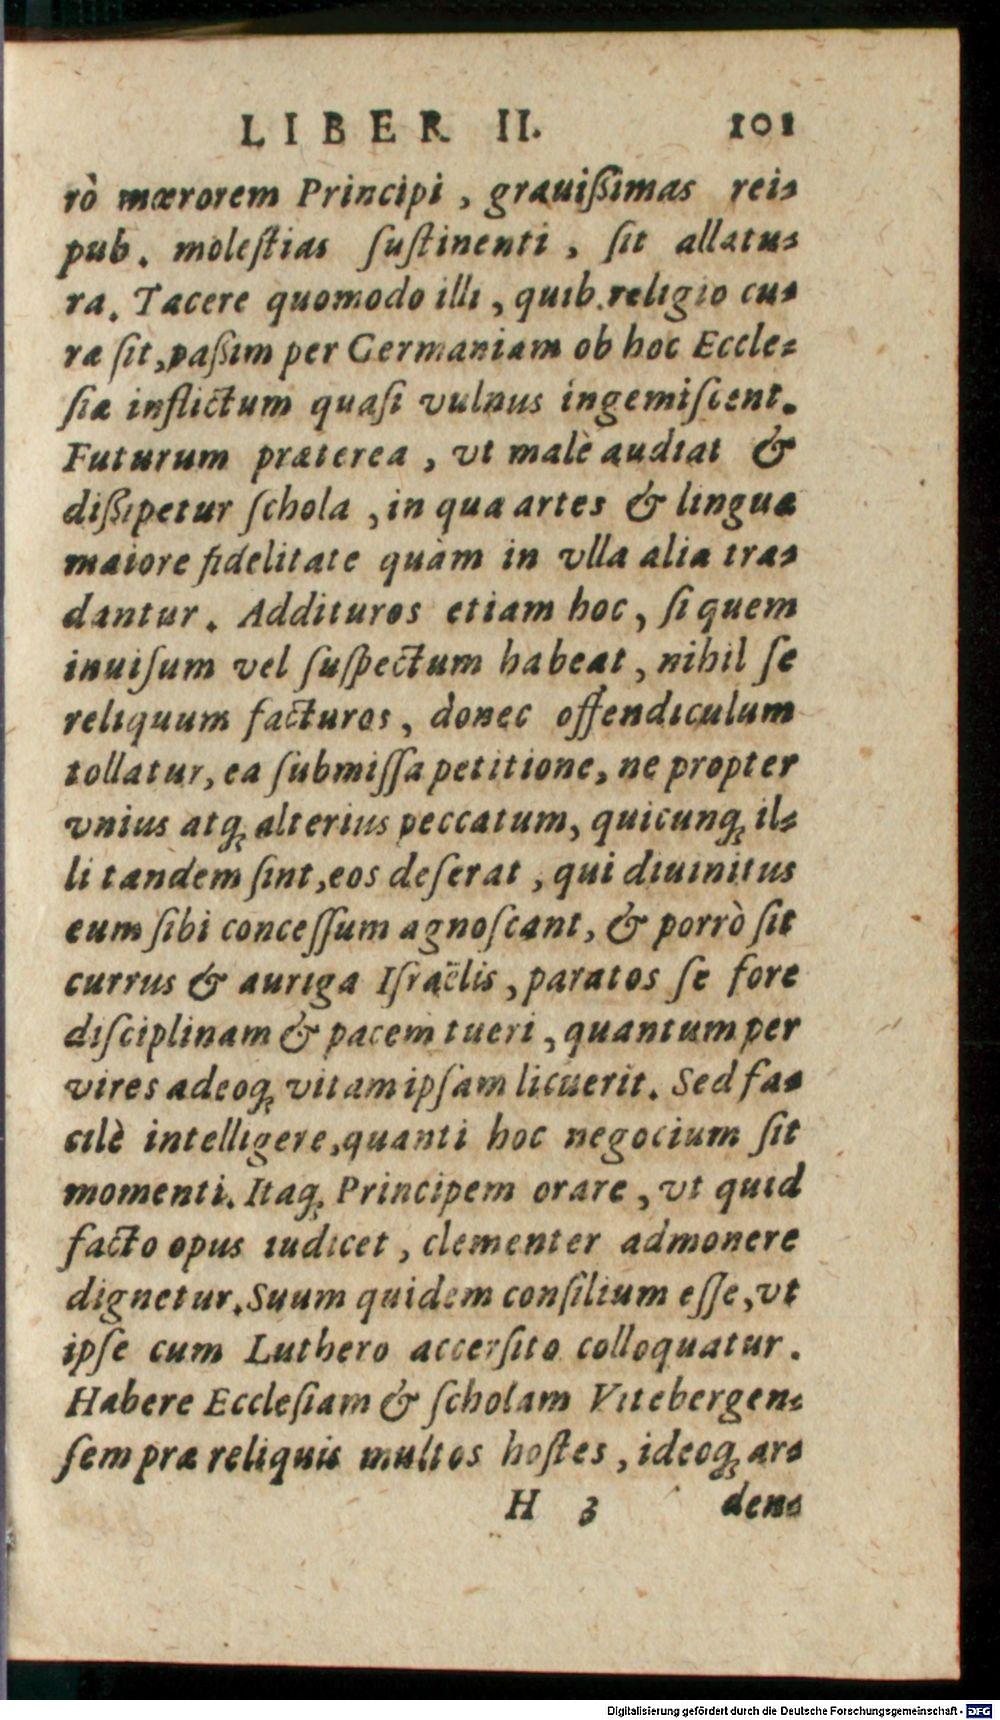 LIBER II. 101
rò mærorem Principi, grauiſsimas rei-
pub. moleſtias ſuſtinenti, ſit allatu-
ra. Tacere quomodo illi, quib. religio cu-
ræ ſit, paſsim per Germaniam ob hoc Eccle-
ſiæ inflictum quaſi vulnus ingemiſcent.
Futurum præterea, vt malè audiat &
diſsipetur ſchola, in qua artes & linguæ
maiore fidelitate quàm in vlla alia tra-
dantur. Addituros etiam hoc, ſi quem
inuiſum vel ſuſpectum habeat, nihil ſe
reliquum facturos, donec offendiculum
tollatur, ea ſubmiſſa petitione, ne propter
vnius atq; alterius peccatum, quicunq; il-
li tandem ſint, eos deſerat, qui diuinitus
eum ſibi conceſſum agnoſcant, & porrò ſit
currus & auriga Iſraëlis, paratos ſe fore
diſciplinam & pacem tueri, quantum per
vires adeoq; vitam ipſam licuerit. Sed fa-
cilè intelligere, quanti hoc negocium ſit
momenti. Itaq; Principem orare, vt quid
facto opus iudicet, clementer admonere
dignetur. Suum quidem conſilium eſſe, vt
ipſe cum Luthero accerſito colloquatur.
Habere Eccleſiam & ſcholam Vitebergen-
ſem præ reliquis multos hoſtes, ideoq; ar-
H 3 den-
Digitalisierung gefördert durch die Deutsche Forschungsgemeinschaft - DFG